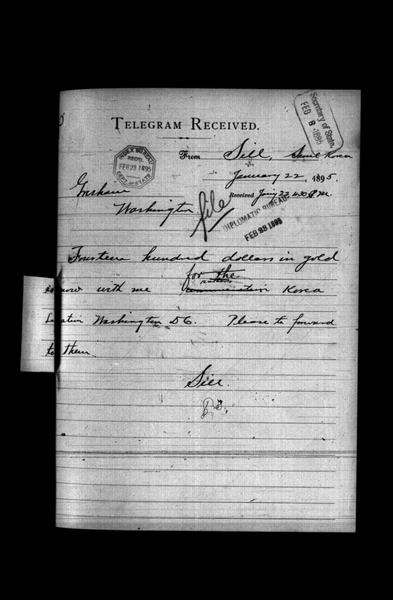 Secretary of State
FEB 8 1895
TELEGRAM RECEIVED.
From Sill, Seoul Korea
INDEX BUREAU
REC'D.
FEB 23 1895
DEP'T OF STATE
January 22, 1895.
Gresham
Received Jany 22 4.30 P.M.
Washington
file
DIPLOMATIC BUREAU
FEB 28 1895
Fourteen hundred dollars in gold
for the
is now with me Korea
Legation Washington D C. Please to forward
to them.
Sill.